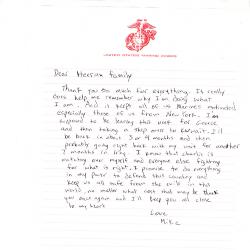 UNITED STATES MARINE CORPS
Dear Family
Thank you so much for everything. It really
does help me remember why I'm doing what
I am. And it keeps all of us Marines motivated
especially those of us from New York. I'm
supposed to be leaving this week for Greece
and then taking a ship over to Kuwait. I'll
be back in about 3 or 4 months and then
probably going right back with my unit for another
7 months in Iraq. I know that
making sure myself and everyone else fighting
for what is right. I promise to do everything
in my power to defend this country and
keep us all safe from the evil in this
world, no matter what cost that may be thank
you once again and I'll keep you all close
to my heart
Love
Mike